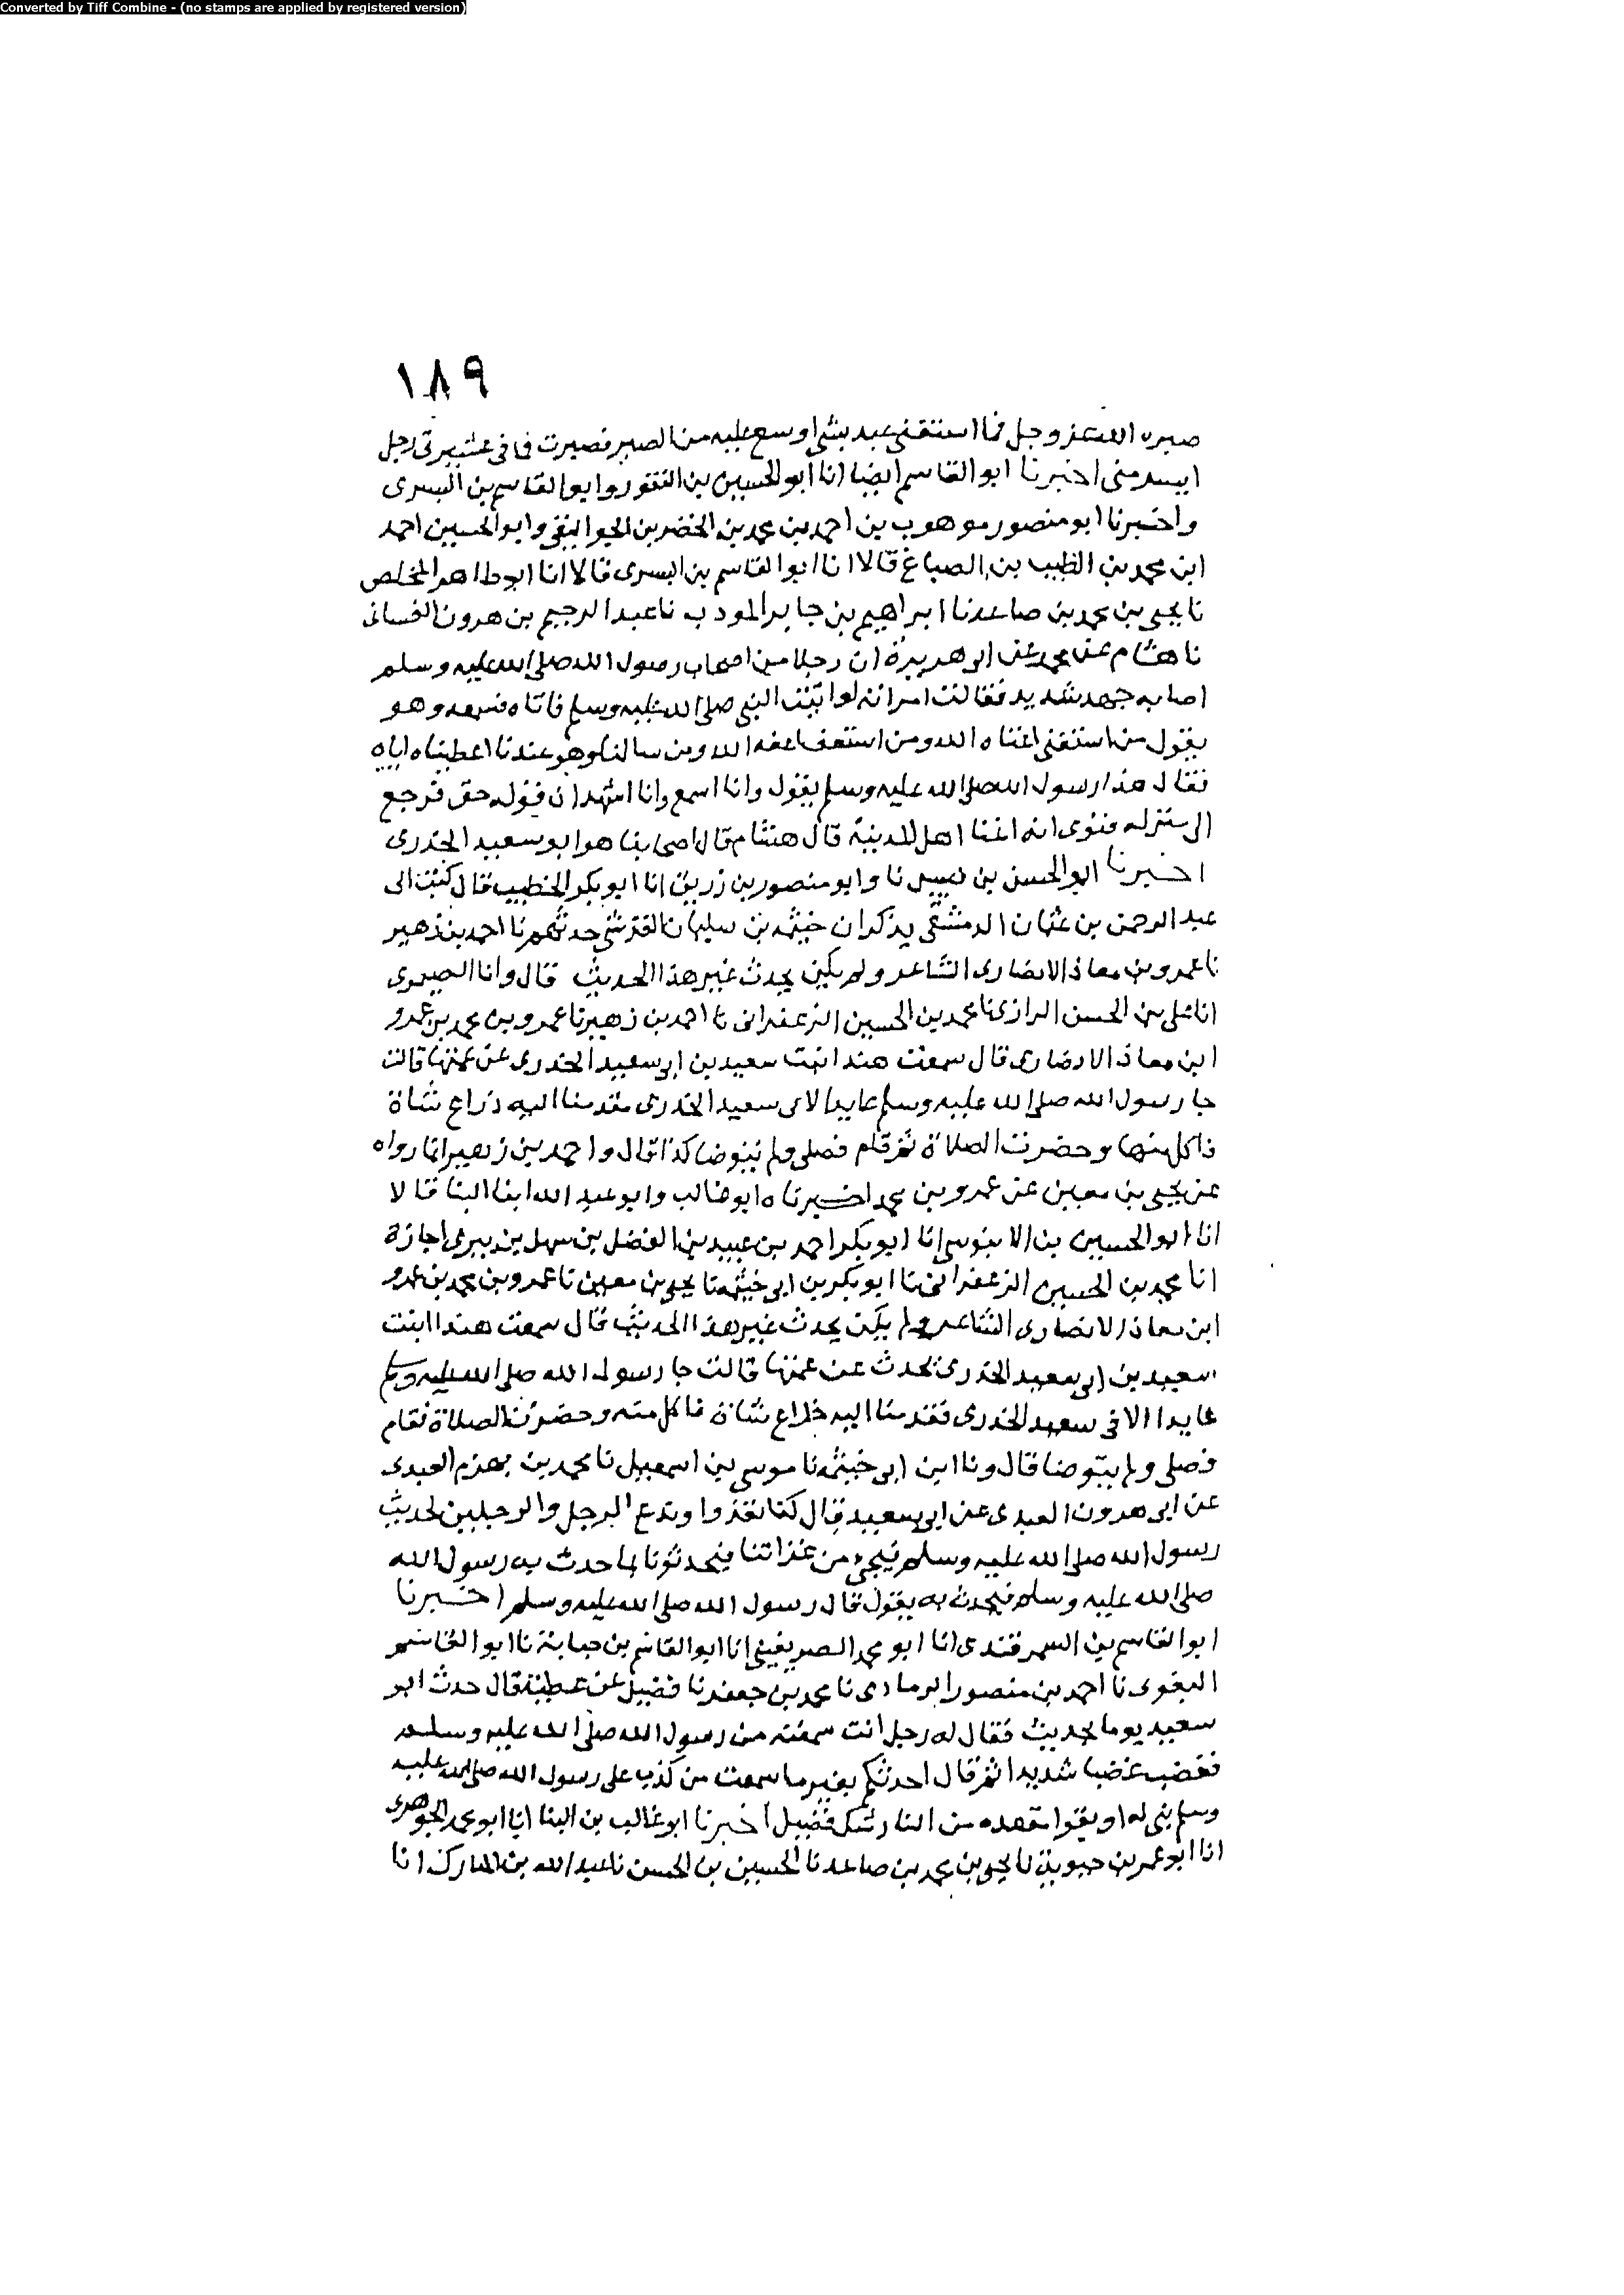 Converted by Tiff Combine - (no stamps are applied by registered version)
١٨٩
صبره الله عز وجل فما استغنى عبد بشى اوسع عليه من الصبر فصبرت فما فى عشيرتى رجل
ايسر منى اخبرنا ابو القاسم ايضا انا ابو الحسين بن النقور وابو القاسم بن البسرى
واخبرنا ابو منصور موهوب بن احمد بن محمد بن الخضر بن الجواليقى وابو الحسين احمد
ابن محمد بن الطيب بن الصباغ قالا انا ابو القاسم بن البسرى قالا انا ابو طاهر المخلص
نا يحيى بن محمد بن صاعد نا ابراهيم بن جابر المودب نا عبد الرحيم بن هرون الغسانى
نا هشام عن محمد عن ابى هريرة ان رجلا من اصحاب رسول الله صلى الله عليه وسلم
اصابه جهد شديد فقالت امراته لو اتيت النبى صلى الله عليه وسلم فاتاه فسمعه وهو
يقول من استغنى اغناه الله ومن استعف اعفه الله ومن سالنا وهو عندنا اعطيناه اياه
فقال هذا رسول الله صلى الله عليه وسلم يقول وانا اسمع وانا اشهد ان قوله حق فرجع
الى منزله فنوى انه اغنا اهل المدينة قال هشام قال اصحابنا هو ابو سعيد الخدرى
اخبرنا ابو الحسن بن قبيس نا وابو منصور بن زريق انا ابو بكر الخطيب قال كتب الى
عبد الرحمن بن عثمان الدمشقى يذكر ان خيثمه بن سليمان القرشى حدثهم نا احمد بن زهير
نا عمرو بن معاذ الانصارى الشاعر ولم يكن يحدث غير هذا الحديث قال وانا الصيمرى
انا على بن الحسن الرازى نا محمد بن الحسين الزعفرانى نا احمد بن زهير نا عمرو بن محمد بن عمرو
ابن معاذ الانصارى قال سمعت هند ابنت سعيد بن ابى سعيد الخدرى عن عمتها قالت
جا رسول الله صلى الله عليه وسلم عايدا لابى سعيد الخدرى فقدمنا اليه ذراع شاة
فاكل منها وحضرت الصلاة ثم قام فصلى ولم يتوضا كذا قال واحمد بن زهير انما رواه
عن يحيى بن معين عن عمرو بن محمد اخبرناه ابو غالب وابو عبد الله ابنا البنا قالا
انا ابو الحسين بن الابنوسى انا ابو بكر احمد بن عبيد بن الفضل بن سهل بن بيرى اجازة
انا محمد بن الحسين الزعفرانى نا ابو بكر بن ابى خيثمه نا يحيى بن معين نا عمرو بن محمد بن عمرو
ابن معاذ الانصارى الشاعر ولم يكن يحدث غير هذا الحديث قال سمعت هندا ابنت
سعيد بن ابى سعيد الخدرى تحدث عن عمتها قالت جا رسول الله صلى الله عليه وسلم
عايدا لابى سعيد الخدرى فقدمنا اليه ذراع شاة فاكل منه وحضرت الصلاة فقام
فصلى ولم يتوضا قال ونا ابن ابى خيثمه نا موسى بن اسمعيل نا محمد بن مهزم العبدى
عن ابى هرون العبدى عن ابى سعيد قال كنا نغذوا وندع الرجل والرجلين لحديث
رسول الله صلى الله عليه وسلم فنجى من غزاتنا فيحدثونا بما حدث به رسول الله
صلى الله عليه وسلم فنحدث به يقول قال رسول الله صلى الله عليه وسلم اخبرنا
ابو القاسم بن السمرقندى انا ابو محمد الصريفينى انا ابو القاسم بن حبابة نا ابو القاسم
البغوى نا احمد بن منصور الرمادى نا محمد بن جعفر نا فضيل عن عطية قال حدث ابو
سعيد يوما بحديث فقال له رجل انت سمعته من رسول الله صلى الله عليه وسلم
فغضب غضبا شديدا ثم قال احدثكم بغير ما سمعت من كذب على رسول الله صلى الله عليه
وسلم بنى له او يتبوا مقعده من النار شك فضيل اخبرنا ابو غالب بن البنا انا ابو محمد الجوهرى
انا ابو عمر بن حيوية نا يحيى بن محمد بن صاعد نا الحسين بن الحسن نا عبد الله بن المبارك انا